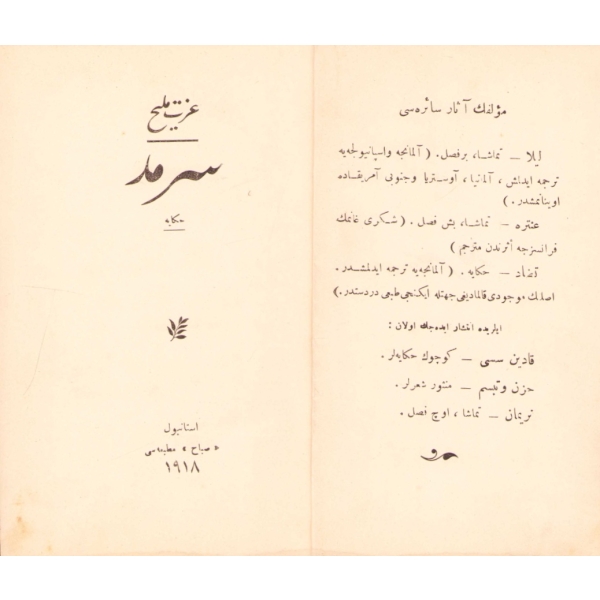 مؤلفك آثار سائره‌سی
لیلا — تماشا، برفصل. ( آلمانجه واسپانیولجه‌یه
ترجمه ایدلمش، آلمانیا، آوستریا وجنوبی آمریقاده
اوینانمشدر. )
عنتره — تماشا، بش فصل. ( شکری غانمك
فرانسزجه أثرندن مترجم )
تضاد — حکایه. ( آلمانجه‌یه ترجمه ایدلمشدر.
اصلنك موجودی قالمادیغی جهتله ایکنجی طبعی دردستدر. )
ایلریده انتشار ایده‌جك اولان :
قادین سسی — کوچوك حکایه‌لر.
حزن وتبسم — منثور شعرلر.
نریمان — تماشا، اوچ فصل.
عزت ملیح
سرمد
حکایه
استانبول
« صباح » مطبعه‌سی
١٩١٨